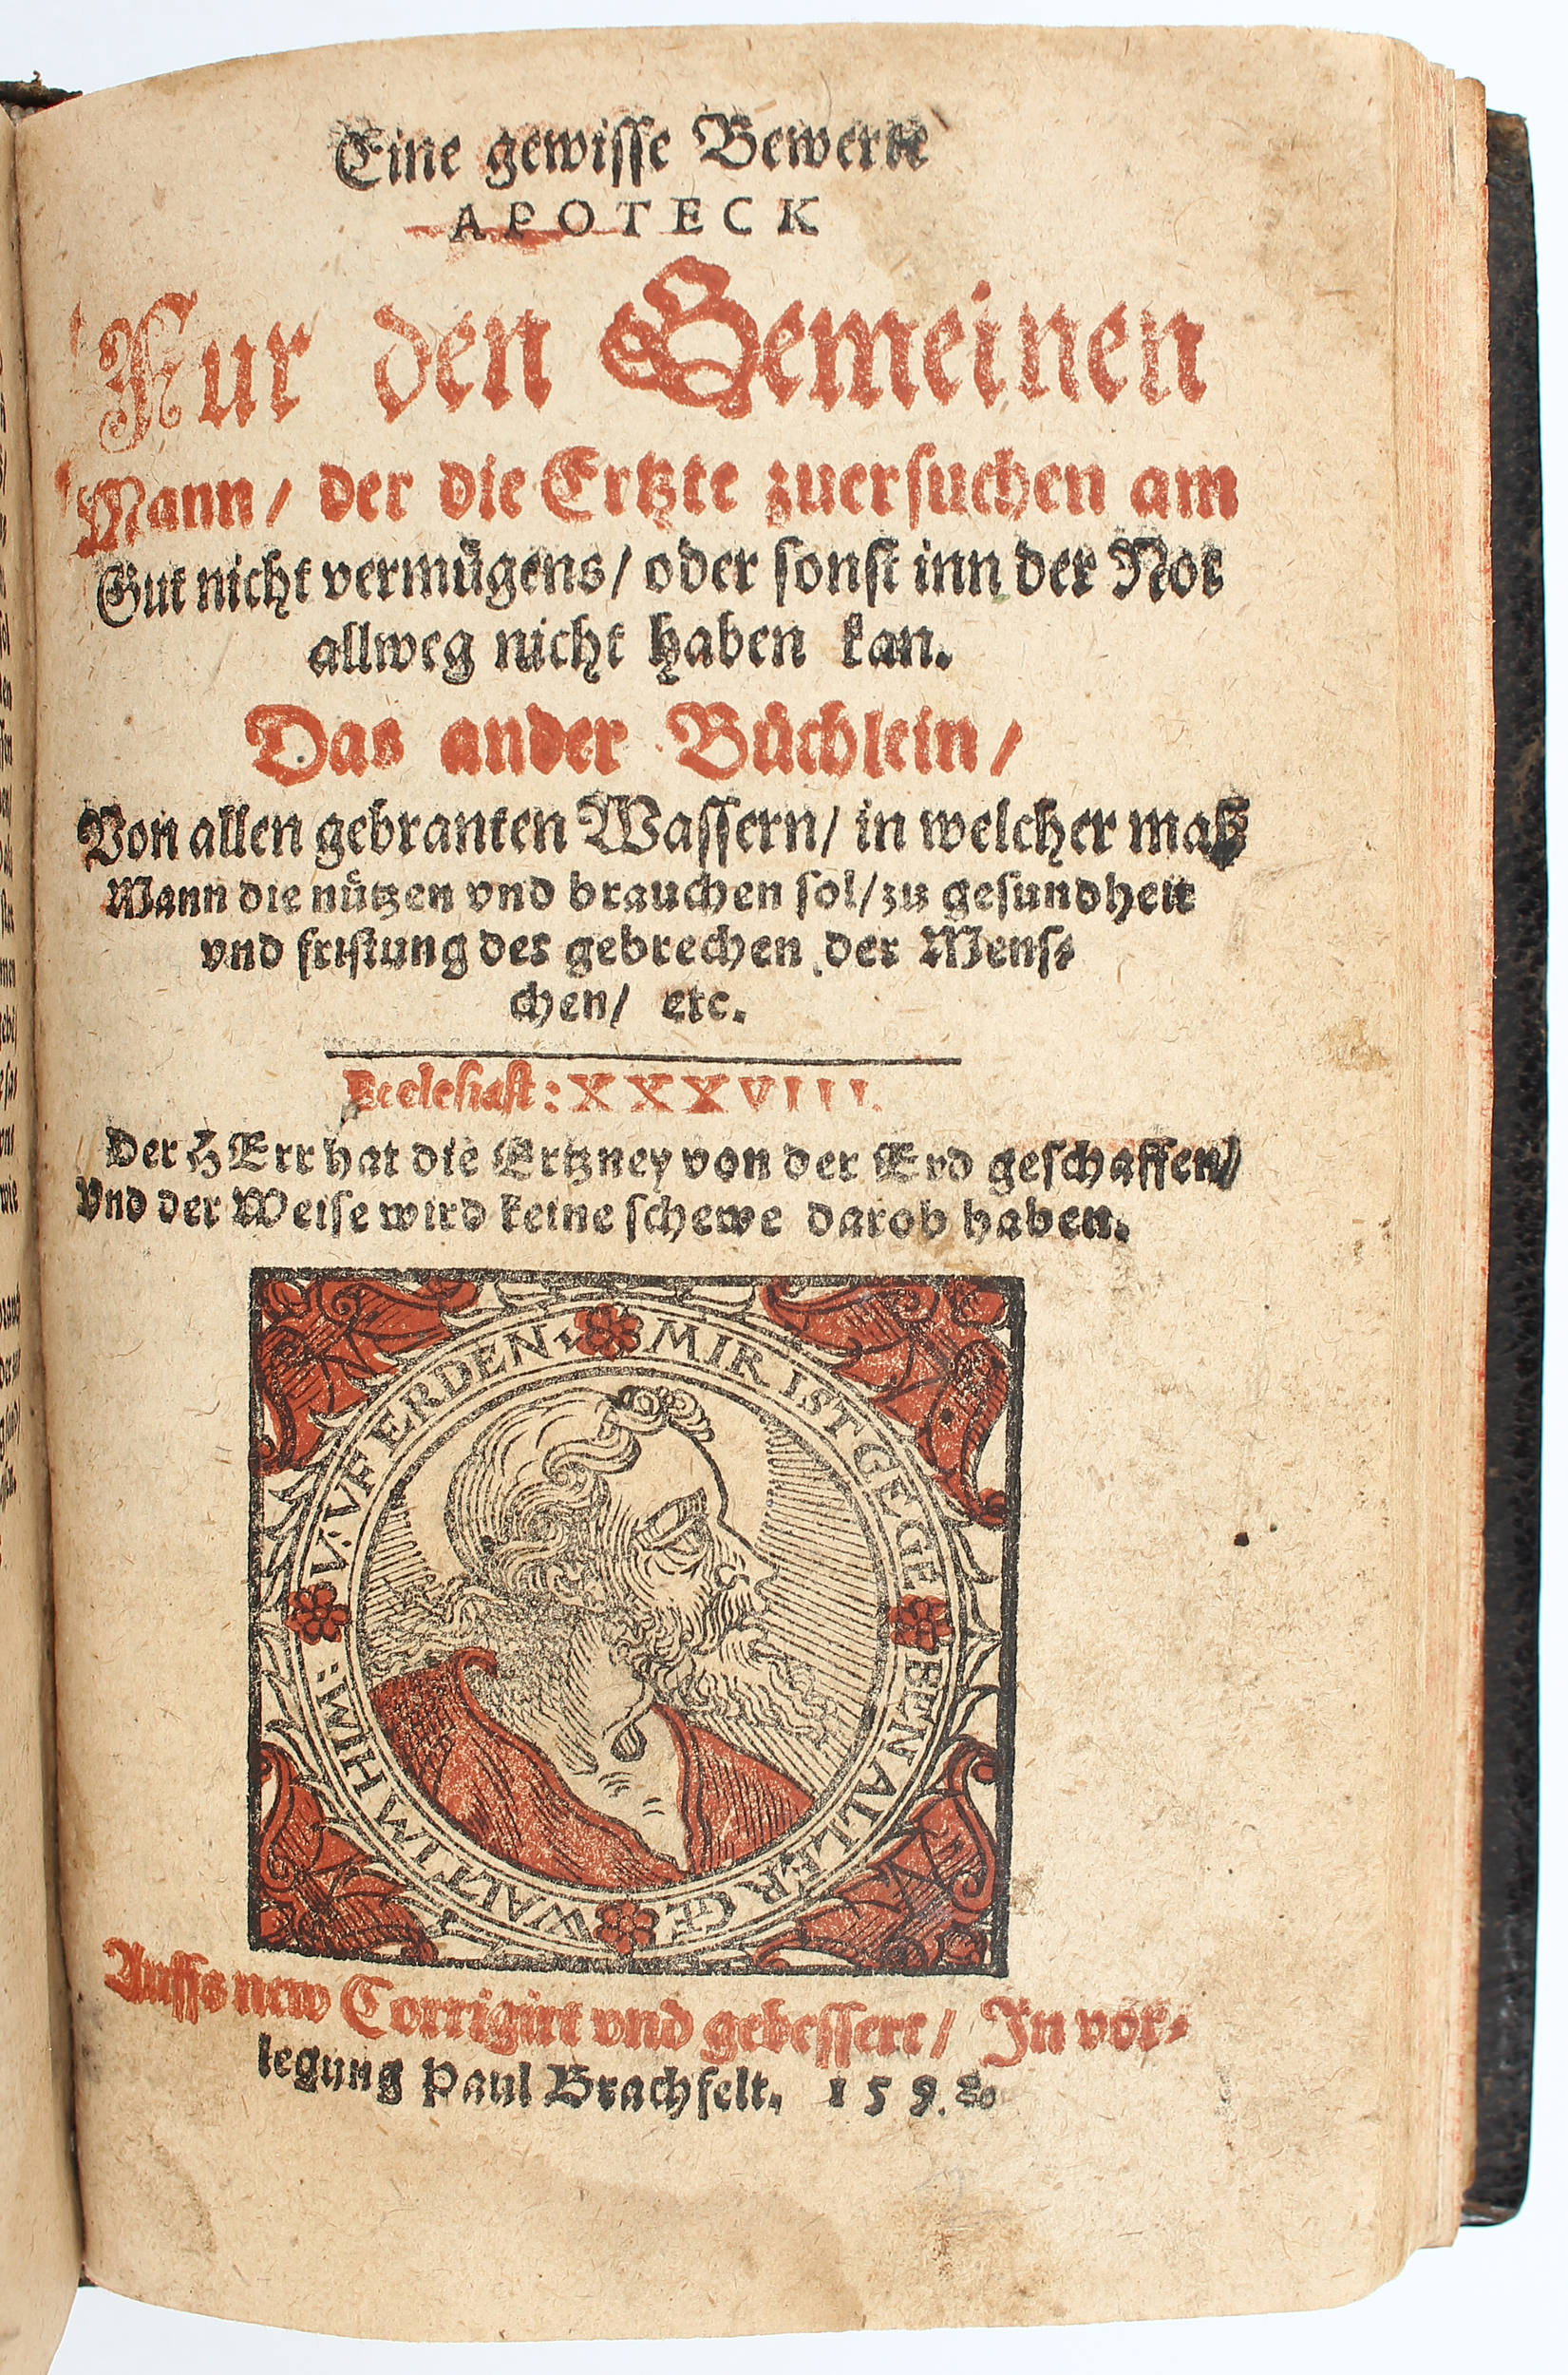 Eine gewisse Bewerte
APOTECK
Fur den Gemeinen
Mann/ der die Ertzte zuersuchen am
Gut nicht vermügens/ oder sonst inn der Not
allweg nicht haben kan.
Das ander Bůchlein/
Von allen gebranten Wassern/ in welcher maß
Mann die nützen vnd brauchen sol/ zu gesundheit
vnd fristung des gebrechen der Mens⸗
chen/ etc.
Ecclesiast: XXXVIII.
Der HErr hat die Ertzney von der Erd geschaffen/
Vnd der Weise wird keine schewe darob haben.
MIR IST GEGE
BEN ALLER GE
WALT IM HIM:
V: VF ERDEN
Auffs new Corrigirt vnd gebessert/ In vor⸗
legung Paul Brachfelt. 159.8.